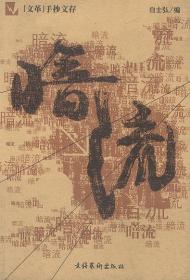 「文革」手抄文存
白士弘/编
暗流
文化艺术出版社